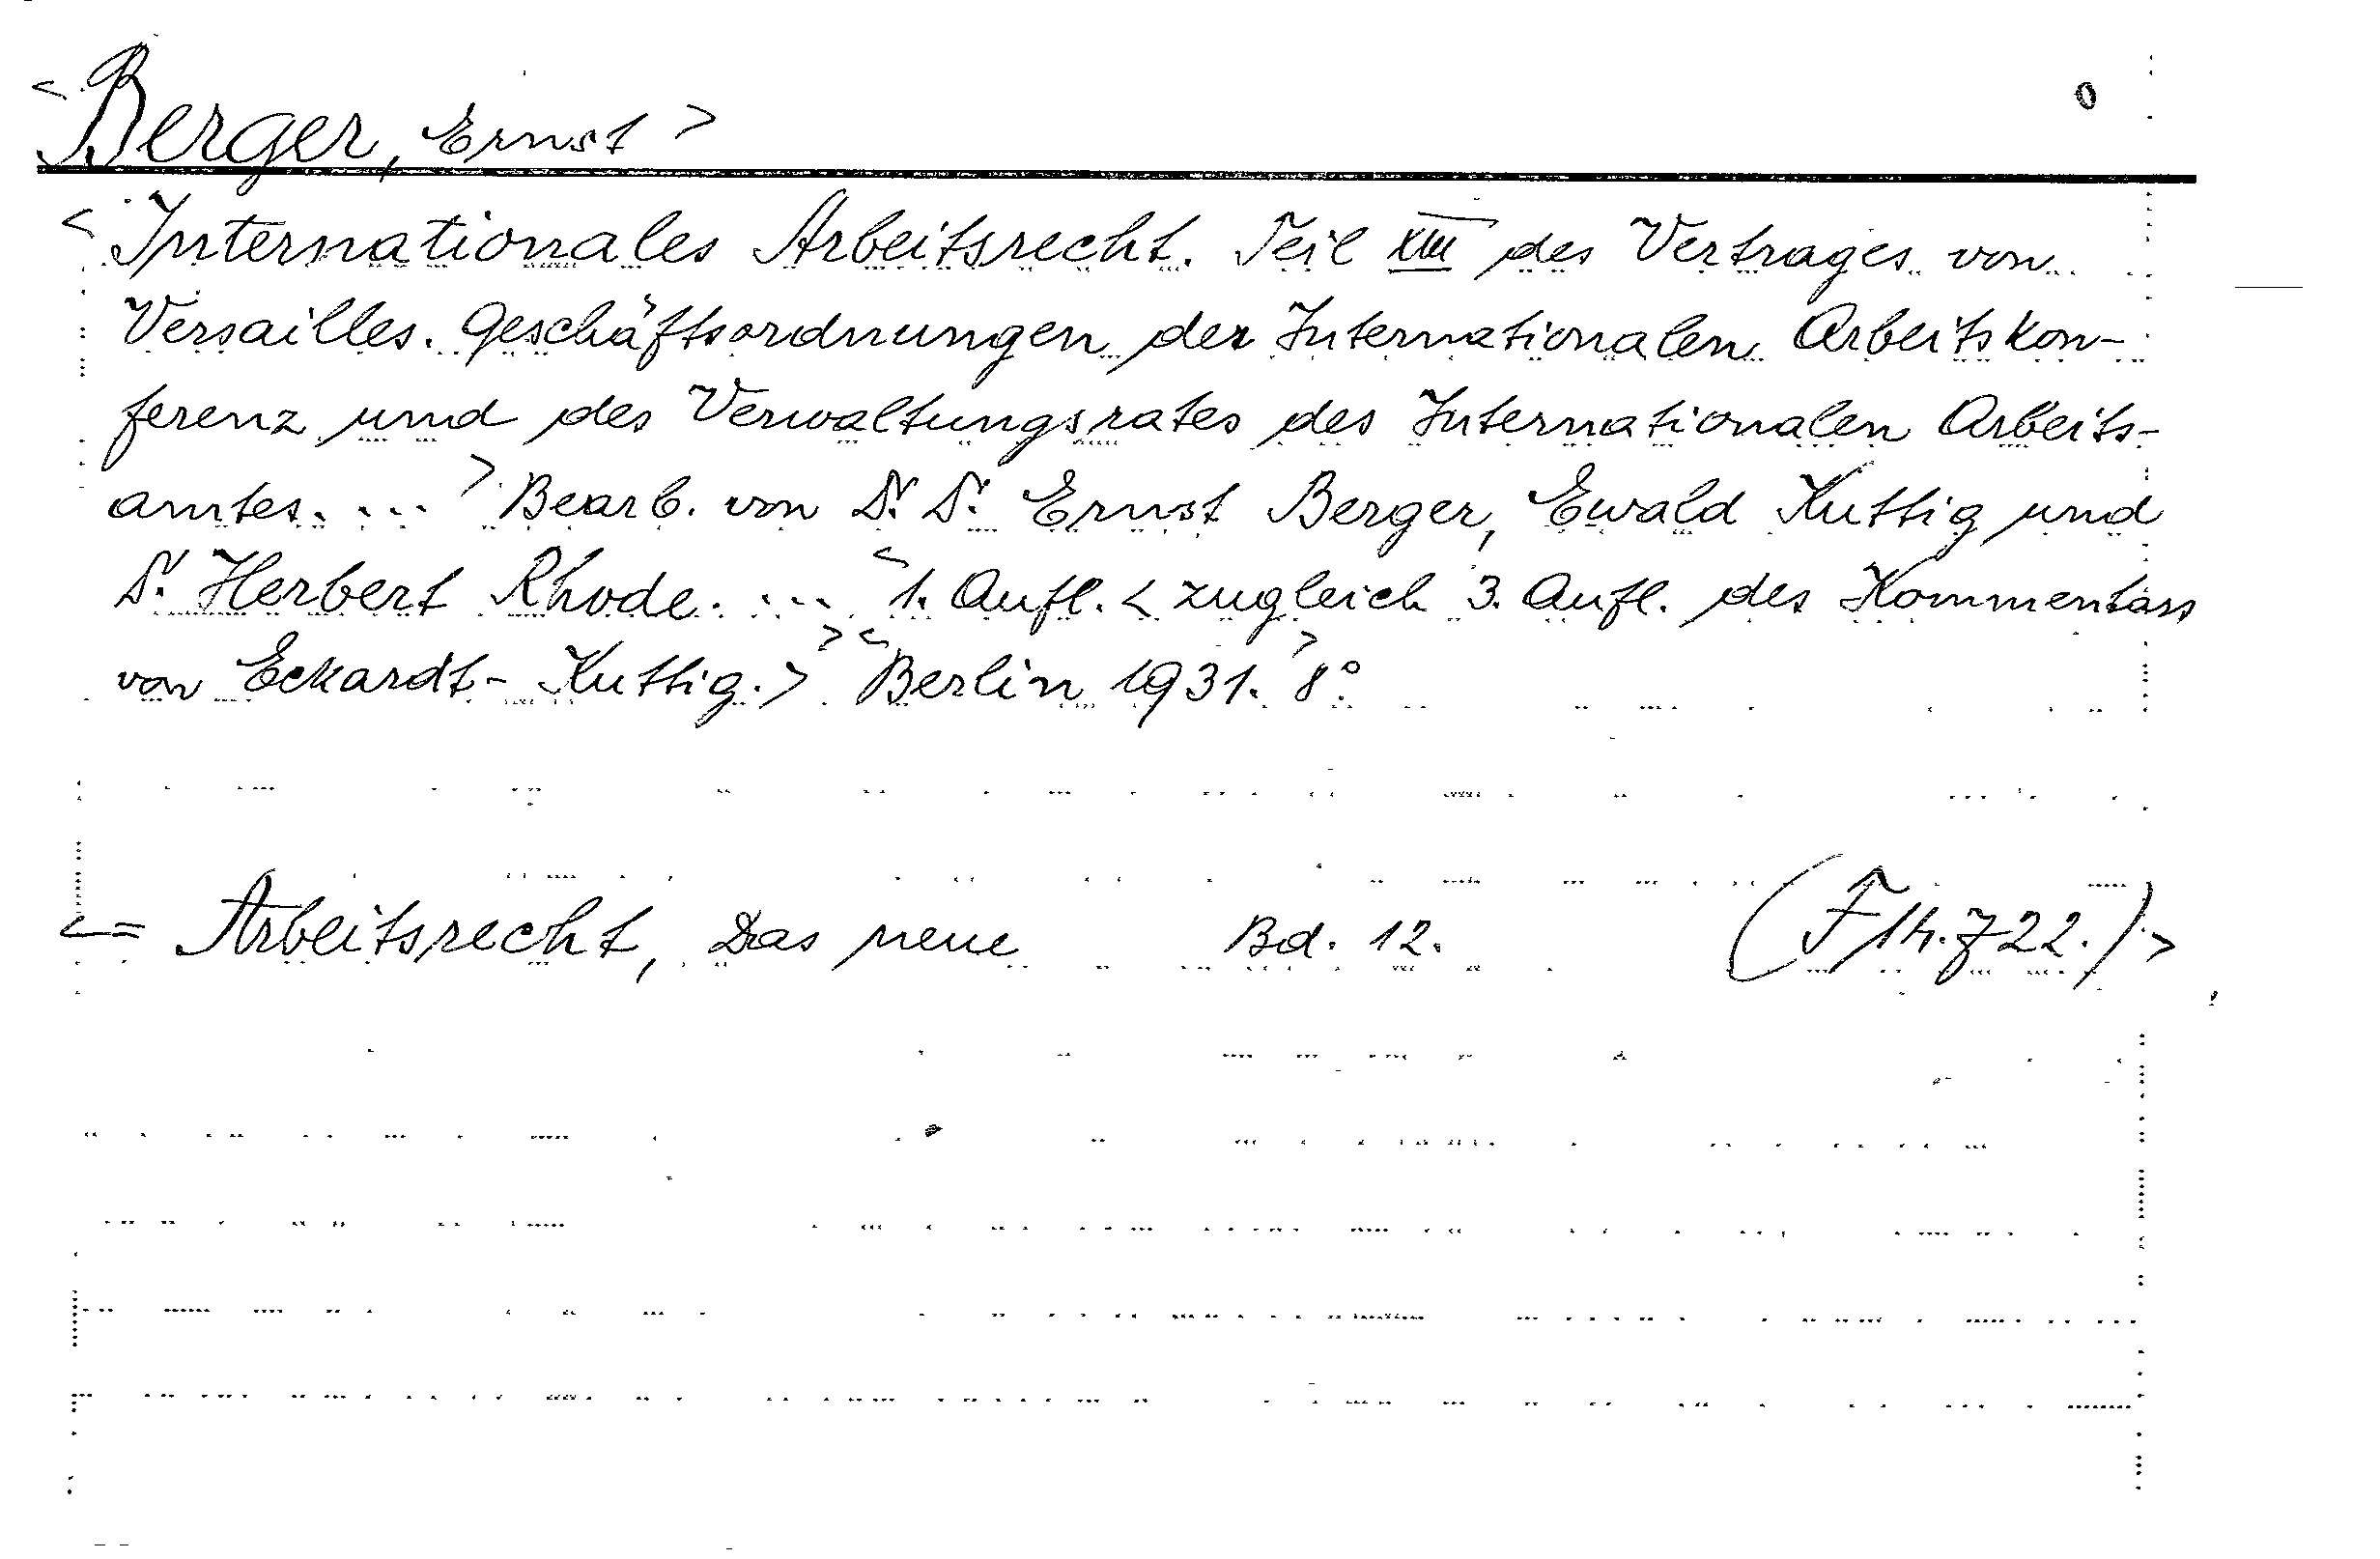 <Berger, Ernst> 0
<Internationales Arbeitsrecht. Teil XIII des Vertrages von
Versailles. Geschäftsordnungen der Internationalen Arbeitskon-
ferenz und des Verwaltungsrates des Internationalen Arbeits-
amtes. ...> Bearb. von Dr. Dr. Ernst Berger, Ewald Kuttig und
Dr. Herbert Rhode. ... <1. Aufl. < zugleich 3. Aufl. des Kommentars
von Eckardt-Kuttig.> > <Berlin 1931.> 8°.
<= Arbeitsrecht, Das neue Bd. 12. (F 14. 722.)>